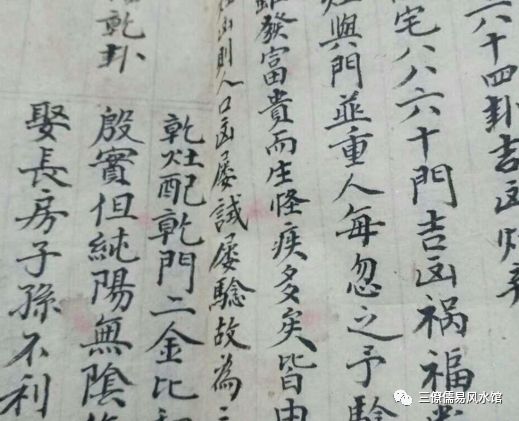 六十四卦吉凶
宅八八六十門吉凶祸福
灶與門並重人每忽之予騐
發富貴而生怪疾多矣皆由
凶則人口凶屡試屡騐故為
乾灶配乾門二金比
乾卦
殷實但純陽無陰
娶長房子孫不利
三僚儒易风水馆